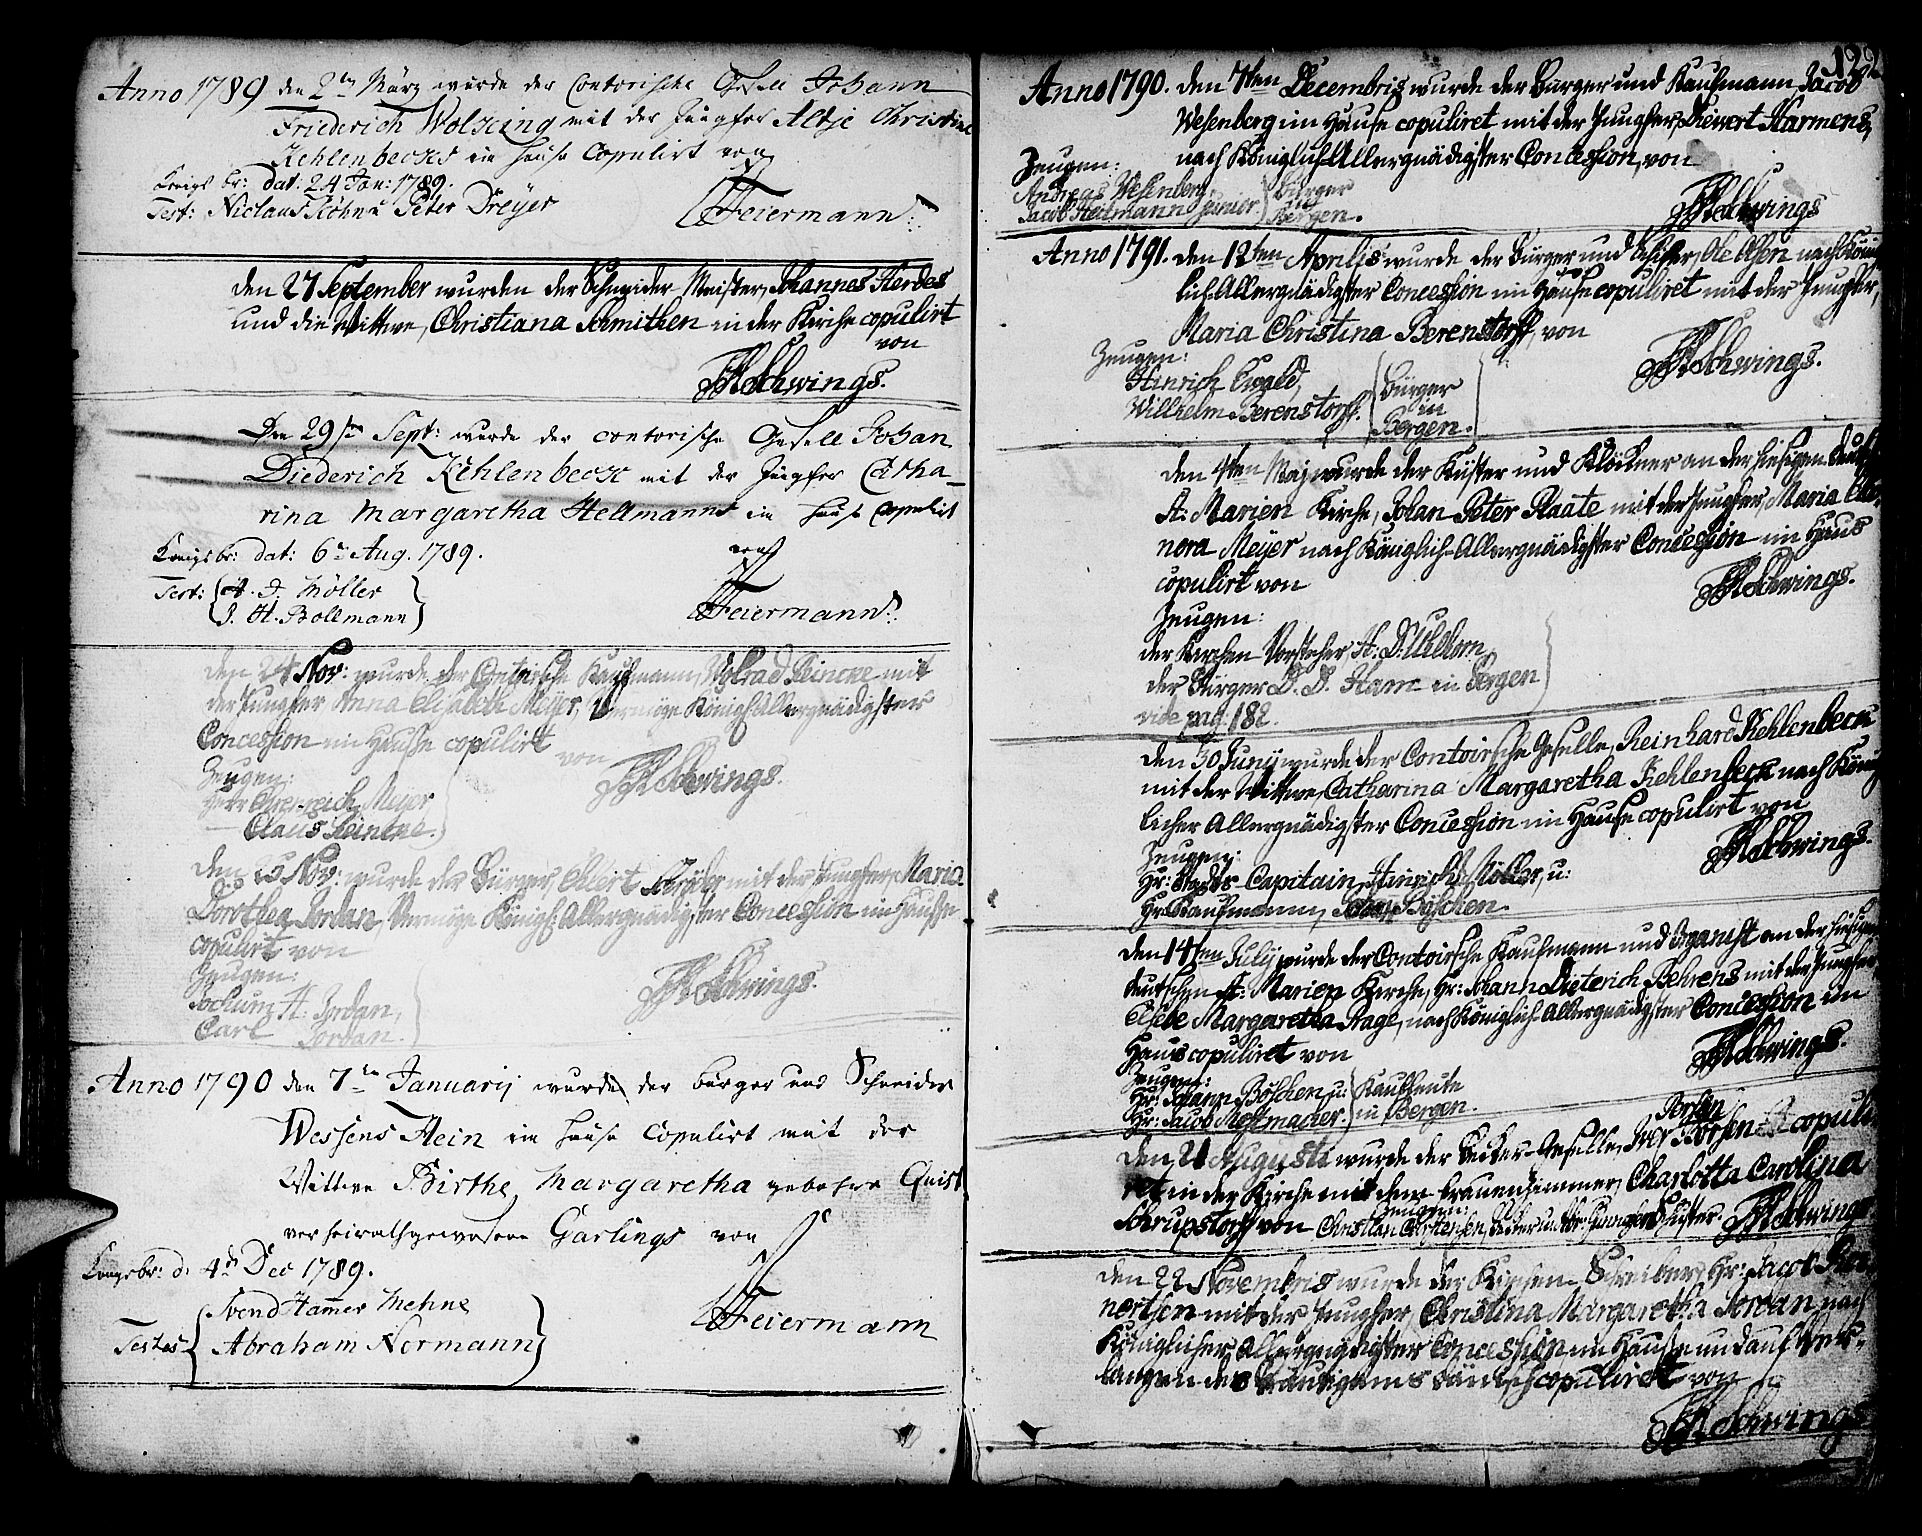 Anno 1789 den 2ten März wurde der Contorische Gesell Johann
Friederich WolsKing mit der Jungfer Altje Christine
Kehlenbecks im Hause Copulirt von
Königs br: dat: 24 Jan: 1789.
Test: Niclaus Köhn u Peter Dreyer
Feiermann.
den 27 September wurden der Schneider Meister, Johannes Herdes
und die Wittwe, Christiana Schmithen in der Kirche copulirt
von
Schwings.
Den 29ten Sept: wurde der contorische Gesell Johan
Diederich Kehlenbeck mit der Jungfer Catha-
rina Margaretha Hellmanns im Hause Copulirt
von
Königsbr: dat: 6ten Aug. 1789.
Test: A. D. Möller
J. H. Bollmann
Feiermann.
den 24 Nov: wurde der Contoirsche Kaufmann, Volrad Reincke mit
der Jungfer Anna Elisabeth Meyer, Vermöge Königl Allergnädigster
Concession im Hausse copulirt
von
Zeugen:
Herr Ehrenreich Meyer
— Claus Reincke.
Schwings.
den 25 Nov: wurde der Bürger, Ehlert Schröder mit der Jungfer, Maria
Dorothea Jordan, Vermöge Königl: Allergnädigster Concession im Hausse
copulirt von
Zeugen:
Jochum H. Jordan,
Carl Jordan.
Schwings.
Anno 1790 den 7ten Januarij wurde der bürger und Schneider
Wessens Hein im Hause Copulirt mit der
Wittwe Birthe Margaretha gebohrne Quist
verheirathgewesene Garlings von
Königsbr: d. 4ten Dec 1789.
Testes Svend Hamer Mehne
Abraham Normann
Feiermann
122
Anno 1790. den 7ten Decembris wurde der Bürger und Kaufmann, Jacob
Wesenberg im Hause copuliret mit der Jungfer, Dievert Harmens,
nach Königlich-Allergnädigster Concession, von
Zeugen:
Andreas Wesenberg,
Jacob Heitmann junior
Bürger
zu
Bergen.
Schwings
Anno 1791. den 12ten Aprilis wurde der Bürger und Schiffer, Ole Olsen nach König
lich-Allergnädigster Concession im Hause copuliret mit der Jungfer,
Maria Christina Berenstorff, von
Zeugen:
Hinrich Ewald,
Willhelm Berenstorff.
Bürger
in
Bergen.
Schwings.
den 4ten Maj wurde der Küster und Klöckner an der hiesigen Deutsch
St: Marien Kirche, Johan Peter Plaate mit der Jungfer, Maria Eleo-
nora Meyer nach Königlich-Allergnädigster Concession im Haus
copulirt von
Schwings.
Zeugen:
der Kirchen Vorsteher, H. D. Uhldorn,
der Bürger D. D. Ham in Bergen
vide pag: 182.
den 30 Junij wurde der Contoirsche Geselle, Reinhard Kehlenbeck
mit der Wittwe, Catharina Margaretha Kehlenbeck nach König
licher Allergnädigster Concession im Hause copulirt von
Zeugen:
Hr: Stadts-Capitain, Hinrich Möller, u:
Hr: Kaufmann, Johan Böschen.
Schwings.
den 14ten Julij wurde der Contoirsche Kaufmann und Organist an der hiesigen
deutschen St: Marien Kirche, Hr: Johann Dieterich Behrens mit der Jungfer
Elsebe Margaretha Prage, nach Königlich-Allergnädigster Concession im
Haus copuliret von
Zeugen:
Hr: Johann Böschen u:
Hr: Jacob Messmacher.
Kaufleute
in Bergen.
Schwings.
den 21 Augusti wurde der Becker-Geselle, Iver copuli-
ret in der Kirche mit dem Frauenzimmer, Charlotta Carolina
Schrupstorff von
Zeugen:
Christian Carstensen, Küster.
Schwings
den 22 Novembris wurde der Kirchen Schreiber, Hr: Jacob
nortsen mit der Jungfer, Christina Margaretha Jordan nach
Königlicher Allergnädigster Concession, im Hausse und auf Ver-
langen des Bräutigams dänisch copuliret von
Schwings